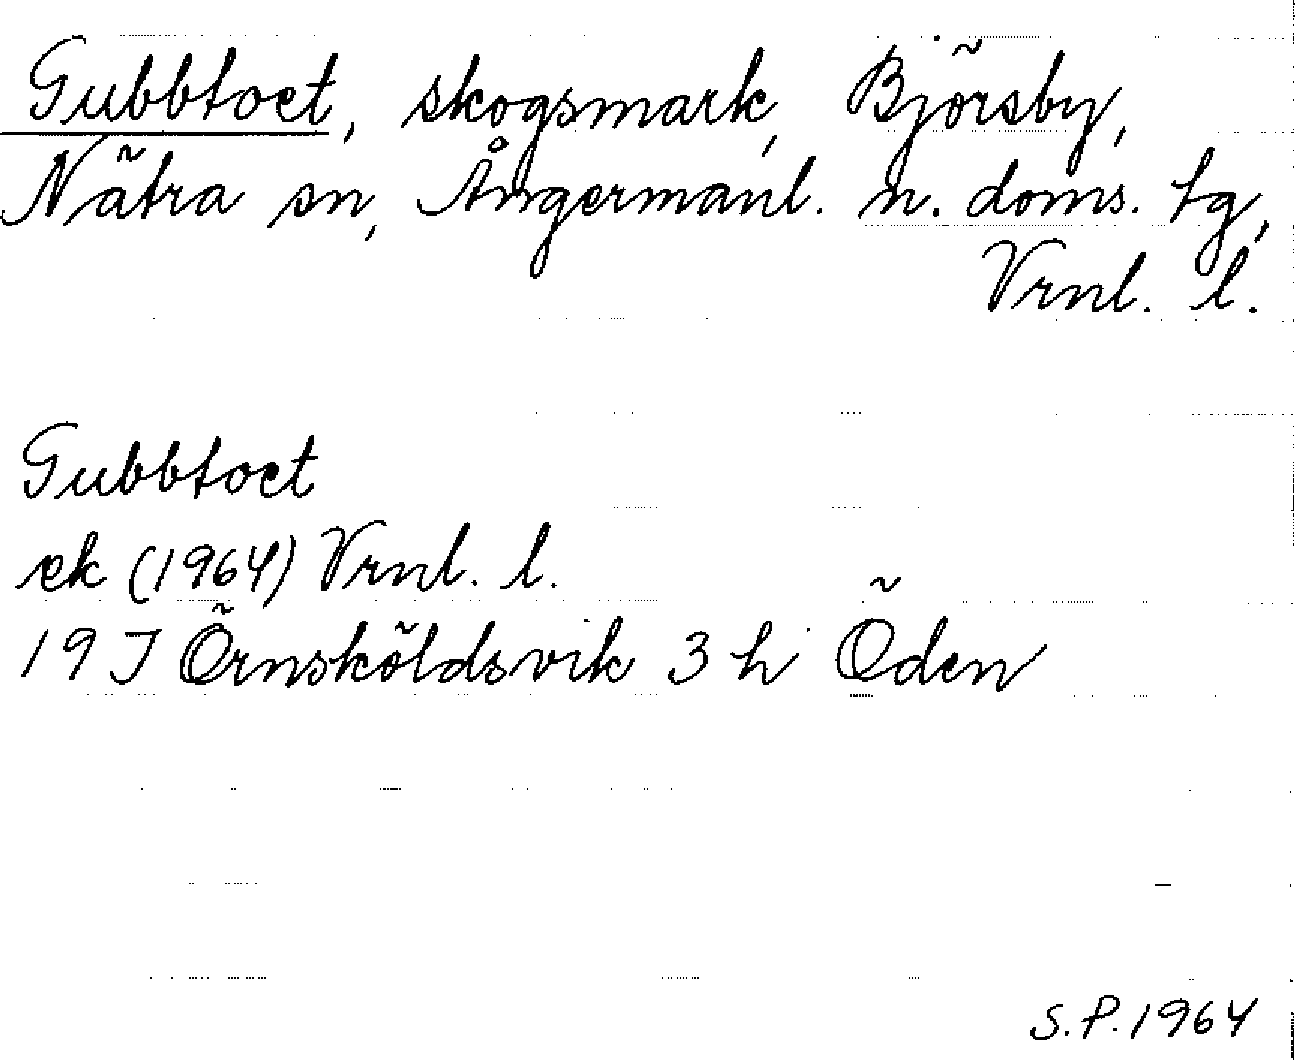 Gubbtoet, skogsmark, Björsby,
Nätra sn, Ångermanl. n. doms. tg,
Vrnl. l.
Gubbtoet
ek (1964) Vrnl. l.
19 J Örnsköldsvik 3 h Öden
S.P. 1964